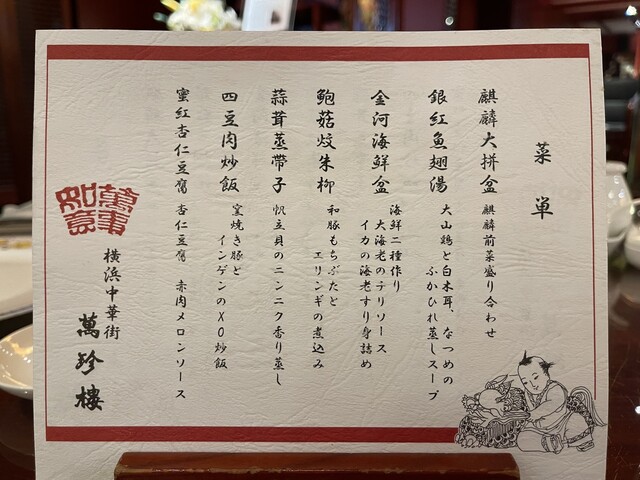 菜単
麒麟大拼盒 麒麟前菜盛り合わせ
銀紅魚翅湯 大山鶏と白木耳、なつめの
ふかひれ蒸しスープ
金河海鮮盒 海鮮二種作り
大海老のチリソース
イカの海老すり身詰め
鮑菇炆朱柳 和豚もちぶたと
エリンギの煮込み
蒜茸蒸帶子 帆立貝のニンニク香り蒸し
四豆肉炒飯 窯焼き豚と
インゲンのXO炒飯
蜜紅杏仁豆腐 杏仁豆腐 赤肉メロンソース
萬事如意
横浜中華街
萬珍樓